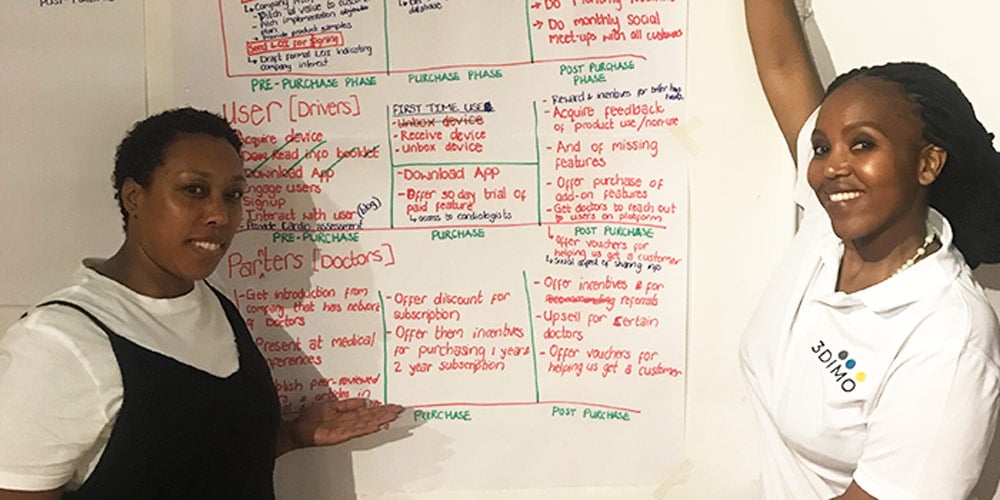 POST-
Company
Pitch is value to custom
Pitch implementation
plan
Provide product samples
Send LOI for Signing
Draft formal LOI indicating
company interest.
database
Do monthly
Do monthly social
meet-ups with all customers
PRE-PURCHASE PHASE
PURCHASE PHASE
POST PURCHASE
PHASE
User [Drivers]
Acquire device
Read info booklet
Download App
Engage users
Signup
Interact with user (blog)
Provide Cardio assessment
PRE-PURCHASE
FIRST TIME USE
- Unbox device
- Receive device
- unbox device
- Download App
- Offer 30 day trial of
paid feature
access to cardiologists
PURCHASE
- Reward & incentives for
- Acquire feedback
of product use/non-use
- And of missing
features
- Offer purchase of
add-on features
- Get doctors to reach out
to users on platform
POST PURCHASE
offer vouchers for
helping us get a customer
social aspect of sharing info
Partners [Doctors]
- Get introduction from
company that has network
of Doctors
Present at medical
conferences
peer-reviewed
articles in
- Offer discount for
subscription
- Offer them incentives
for purchasing 1 year &
2 year subscription
PURCHASE
- Offer incentives for
referrals
- Upsell for certain
doctors
- Offer vouchers for
helping us get a customer
POST PURCHASE
3DIMO